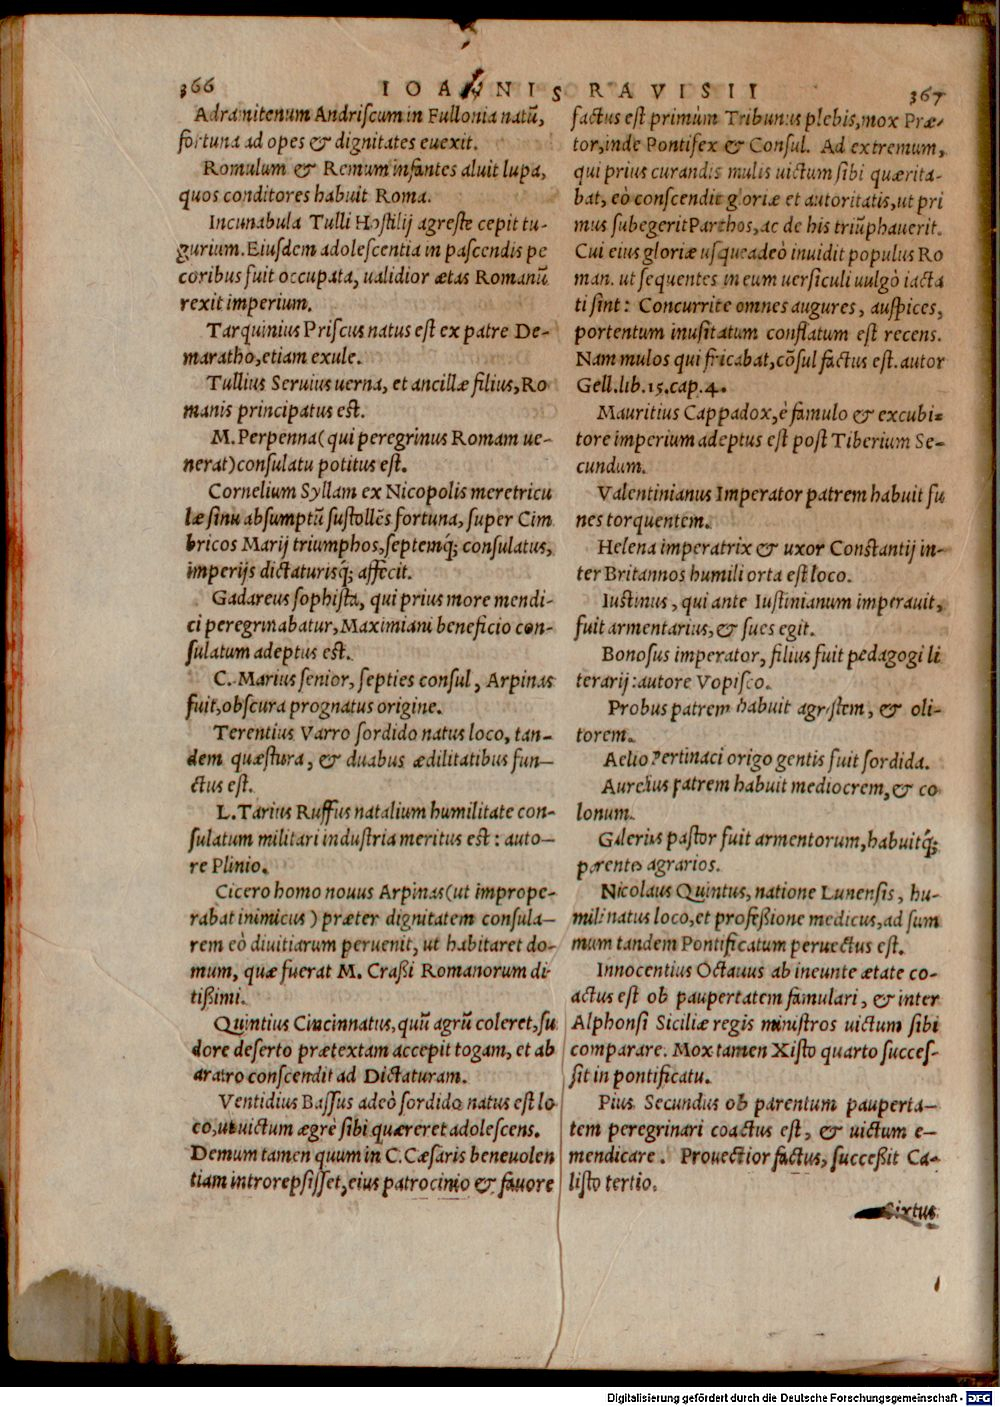 366
IOANNIS RAVISII
367
Adramitenum Andriſcum in Fullonia natũ,
fortuna ad opes & dignitates euexit.
Romulum & Remum infantes aluit lupa,
quos conditores habuit Roma.
Incunabula Tulli Hoſtilij agreſte cepit tu-
gurium. Eiuſdem adoleſcentia in paſcendis pe
coribus fuit occupata, ualidior ætas Romanũ
rexit imperium.
Tarquinius Priſcus natus eſt ex patre De-
maratho, etiam exule.
Tullius Seruius uerna, et ancillæ filius, Ro
manis principatus eſt.
M. Perpenna (qui peregrinus Romam ue-
nerat) conſulatu potitus eſt.
Cornelium Syllam ex Nicopolis meretricu
læ ſinu abſumptũ ſuſtollẽs fortuna, ſuper Cim
bricos Marij triumphos, ſeptemq́; conſulatus,
imperijs dictaturisq́; affecit.
Gadareus ſophiſta, qui prius more mendi-
ci peregrinabatur, Maximiani beneficio con-
ſulatum adeptus eſt.
C. Marius ſenior, ſepties conſul, Arpinas
fuit, obſcura prognatus origine.
Terentius Varro ſordido natus loco, tan-
dem quæſtura, & duabus ædilitatibus fun-
ctus eſt.
L. Tarius Ruffus natalium humilitate con-
ſulatum militari induſtria meritus eſt: auto-
re Plinio.
Cicero homo nouus Arpinas (ut imprope-
rabat inimicus) præter dignitatem conſula-
rem eò diuitiarum peruenit, ut habitaret do-
mum, quæ fuerat M. Craßi Romanorum di
tißimi.
Quintius Cincinnatus, quũ agrũ coleret, ſu
dore deſerto prætextam accepit togam, et ab
aratro conſcendit ad Dictaturam.
Ventidius Baſſus adeò ſordido natus eſt lo
co, ut uictum ægrè ſibi quæreret adoleſcens.
Demum tamen quum in C. Cæſaris beneuolen
tiam introrepſiſſet, eius patrocinio & fauore
factus eſt primùm Tribunus plebis, mox Præ-
tor, inde Pontifex & Conſul. Ad extremum,
qui prius curandis mulis uictum ſibi quærita-
bat, eò conſcendit gloriæ et autoritatis, ut pri
mus ſubegerit Parthos, ac de his triũphauerit.
Cui eius gloriæ uſqueadeò inuidit populus Ro
man. ut ſequentes in eum uerſiculi uulgò iacta
ti ſint: Concurrite omnes augures, auſpices,
portentum inuſitatum conflatum eſt recens.
Nam mulos qui fricabat, cõſul factus eſt. autor
Gell. lib. 15. cap. 4.
Mauritius Cappadox, è famulo & excubi-
tore imperium adeptus eſt poſt Tiberium Se-
cundum.
Valentinianus Imperator patrem habuit fu
nes torquentem.
Helena imperatrix & uxor Conſtantij in-
ter Britannos humili orta eſt loco.
Iuſtinus, qui ante Iuſtinianum imperauit,
fuit armentarius, & ſues egit.
Bonoſus imperator, filius fuit pedagogi li
terarij: autore Vopiſco.
Probus patrem habuit agreſtem, & oli-
torem.
Aelio Pertinaci origo gentis fuit ſordida.
Aurelius patrem habuit mediocrem, & co
lonum.
Galerius paſtor fuit armentorum, habuitq́;
parentes agrarios.
Nicolaus Quintus, natione Lunenſis, hu-
mili natus loco, et profeßione medicus, ad ſum
mum tandem Pontificatum peruectus eſt.
Innocentius Octauus ab ineunte ætate co-
actus eſt ob paupertatem famulari, & inter
Alphonſi Siciliæ regis miniſtros uictum ſibi
comparare. Mox tamen Xiſto quarto ſucceſ-
ſit in pontificatu.
Pius Secundus ob parentum pauperta-
tem peregrinari coactus eſt, & uictum e-
mendicare. Prouectior factus, ſucceßit Ca-
liſto tertio.
Sixtus
Digitalisierung gefördert durch die Deutsche Forschungsgemeinschaft - DFG